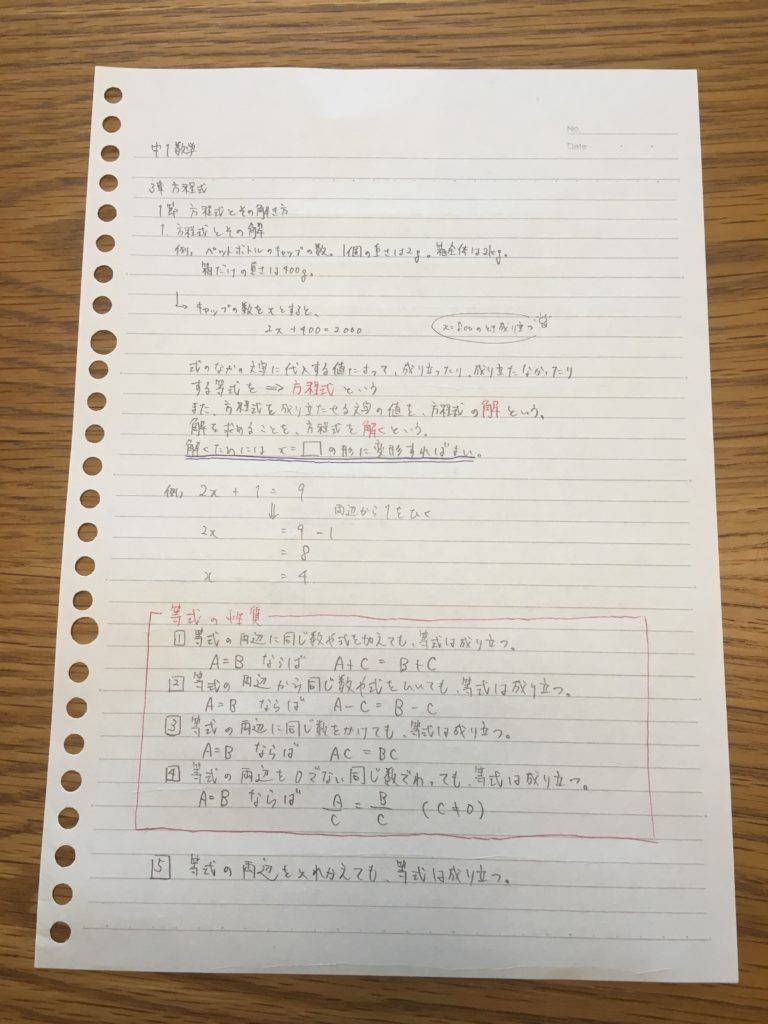 No.
Date
中1数学
3章 方程式
1節 方程式とその解き方
1. 方程式とその解
例) ペットボトルのキャップの数。1個の重さは2g。箱全体は2kg。
箱だけの重さは400g。
↳ キャップの数をxとすると、
2x+400=2000 x=800のとき成り立つ
式のなかの文字に代入する値によって、成り立ったり、成り立たなかったり
する等式を ⇒ 方程式 という
また、方程式を成り立たせる文字の値を、方程式の解という。
解を求めることを、方程式を解くという。
解くためには x=□の形に変形すればよい。
例) 2x + 1 = 9
⇓ 両辺から1をひく
2x = 9 - 1
= 8
x = 4
等式の性質
1 等式の両辺に同じ数や式を加えても、等式は成り立つ。
A=B ならば A+C = B+C
2 等式の両辺から同じ数や式をひいても、等式は成り立つ。
A=B ならば A-C = B-C
3 等式の両辺に同じ数をかけても、等式は成り立つ。
A=B ならば AC = BC
4 等式の両辺を0でない同じ数でわっても、等式は成り立つ。
A=B ならば A/C = B/C (C≠0)
5 等式の両辺を入れかえても、等式は成り立つ。